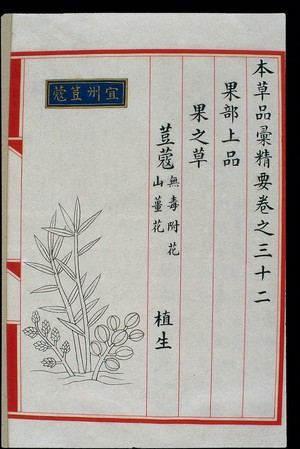 本草品彙精要卷之三十二
果部上品
果之草
荳蔻 無毒附花 山薑花 植生
宜州荳蔻